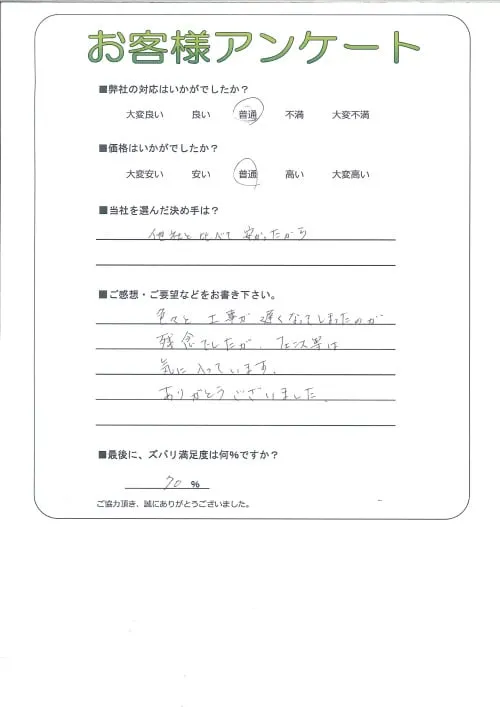 お客様アンケート
■弊社の対応はいかがでしたか？
大変良い 良い 普通 不満 大変不満
■価格はいかがでしたか？
大変安い 安い 普通 高い 大変高い
■当社を選んだ決め手は？
他社と比べて安かったから
■ご感想・ご要望などをお書き下さい。
色々と工事が遅くなってしまったのが
残念でしたが、フェンス等は
気に入っています。
ありがとうございました。
■最後に、ズバリ満足度は何％ですか？
70 ％
ご協力頂き、誠にありがとうございました。